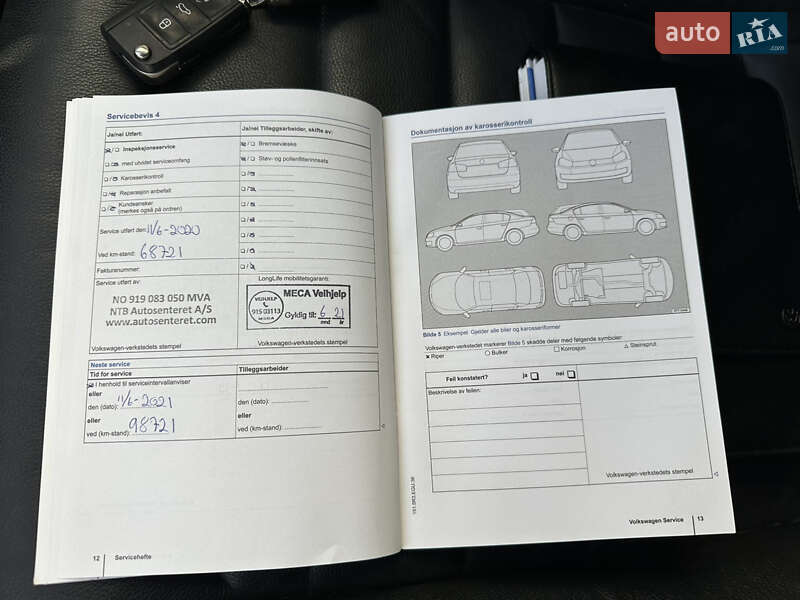 auto RIA .com
Servicebevis 4
Ja/nei Utført:
Ja/nei Tilleggsarbeider, skifte av:
Inspeksjonsservice
Bremsevæske
med utvidet serviceomfang
Støv- og pollenfilterinnsats
Karosserikontroll
Reparasjon anbefalt
Kundeønsker
(merkes også på ordren)
Service utført den: 11/6-2020
Ved km-stand: 68721
Fakturanummer:
Service utført av:
LongLife mobilitetsgaranti:
NO 919 083 050 MVA
NTB Autosenteret A/S
www.autosenteret.com
MECA Veihjelp
VEIHJELP
915 03113
Gyldig til: 6 21
mnd år
Volkswagen-verkstedets stempel
Volkswagen-verkstedets stempel
Neste service
Tid for service
Tilleggsarbeider
I henhold til serviceintervallanviser
eller
den (dato): 11/6-2021
den (dato):
eller
eller
ved (km-stand): 98721
ved (km-stand):
12 Servicehefte
Dokumentasjon av karosserikontroll
Bilde 5 Eksempel: Gjelder alle biler og karosseriformer
Volkswagen-verkstedet markerer Bilde 5 skadde deler med følgende symboler:
Riper
Bulker
Korrosjon
Steinsprut.
Feil konstatert? ja nei
Beskrivelse av feilen:
Volkswagen-verkstedets stempel
Volkswagen Service 13